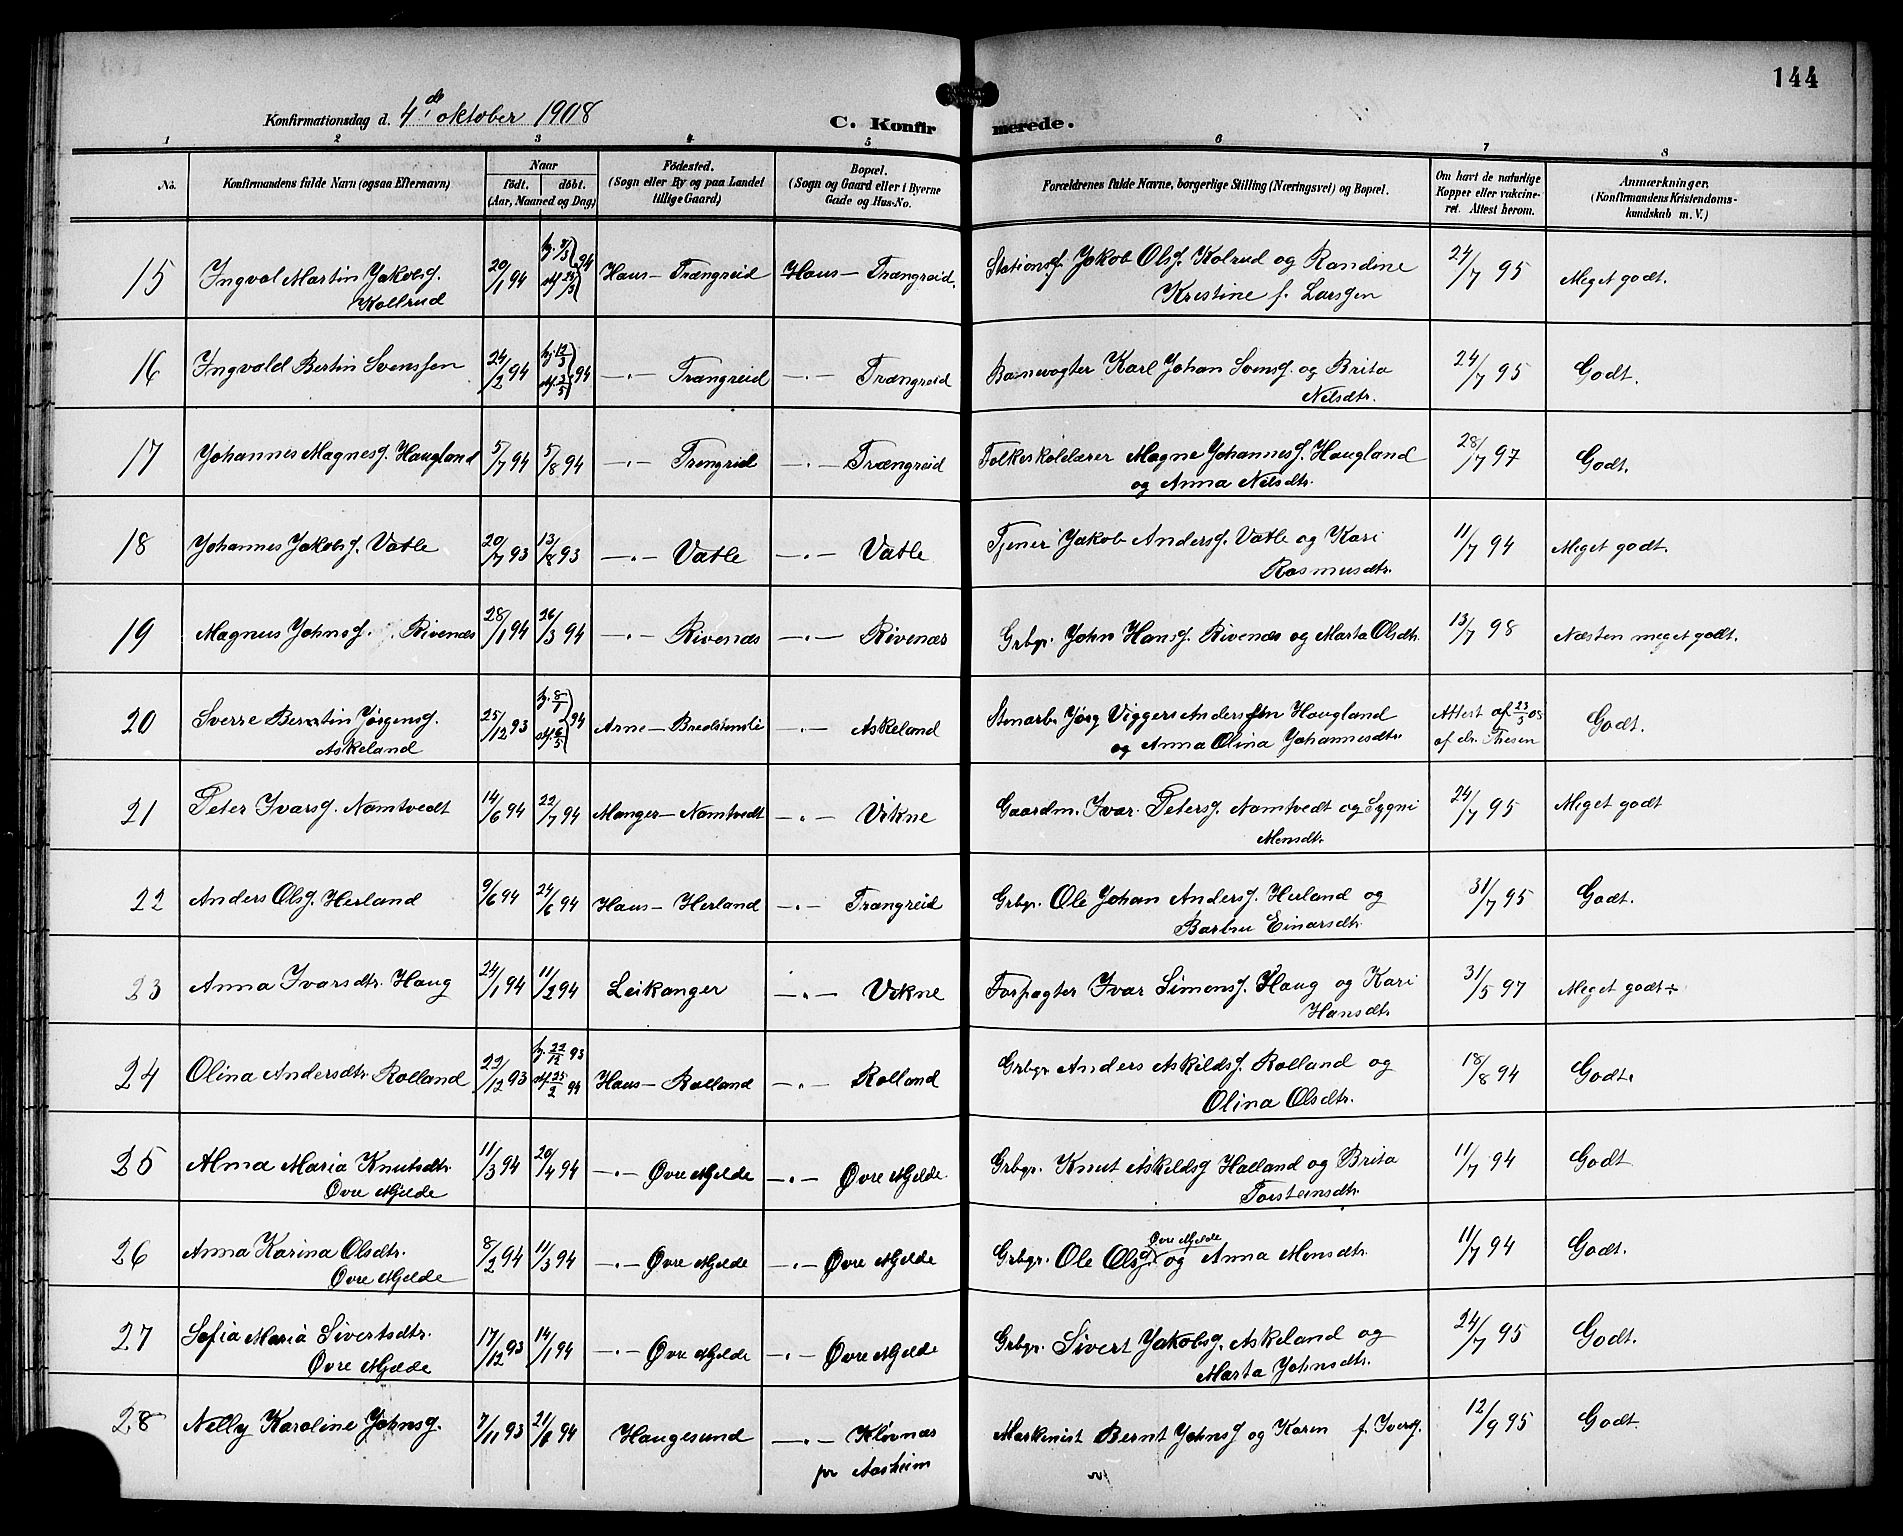 144
Konfirmationsdag d. 4de oktober 1908
C. Konfirmerede.
1 2 3 4 5 6 7 8
No.
Konfirmandens fulde Navn (ogsaa Efternavn)
Naar
födt. döbt.
(Aar, Maaned og Dag)
Födested.
(Sogn eller By og paa Landet
tillige Gaard)
Bopæl.
(Sogn og Gaard eller i Byerne
Gade og Hus-No.
Forældrenes fulde Navne, borgerlige Stilling (Næringsvei) og Bopæl.
Om havt de naturlige
Kopper eller vakcine-
ret. Attest herom.
Anmærkninger.
(Konfirmandens Kristendoms-
kundskab m. V.)
15 Ingval Martin Jakobs. 20/1 94 Haus - Trængreid Haus - Trængreid. Stations. Jakob Ols. Kolrud og Randine 24/7 95 Meget godt.
Kollrud Kristine f. Larsen
16 Ingvald Bertin Svenssen 24/2 94 hj. 12/3 stf. 3/5 94 -„- Trængreid -„- Trængreid Banevogter Karl Johan Svens. og Brita 24/7 95 Godt.
Nelsdtr.
17 Johannes Magnes. Haugland 5/7 94 5/8 94 -„- Trengreid -„- Trængreid Folkeskolelærer Magne Johannes. Haugland 28/7 97 Godt.
og Anna Nelsdtr.
18 Johannes Jakobs. Vatle 20/7 93 13/8 93 -„- Vatle -„- Vatle Tjener Jakob Anders. Vatle og Kari 11/7 94 Meget godt.
Rasmusdtr.
19 Magnus Johns. Rivenæs 28/1 94 26/3 94 -„- Rivenæs -„- Rivenæs Grbgr. John Hans. Rivenæs og Marta Olsdtr. 13/7 98 Næsten meget godt.
20 Sverre Berntin Jörgens. 25/12 93 hj. 8/1 stf. 6/5 94 Arne - -„- Askeland Stenarb. Jörg Viggers Anderssen Haugland Attest af 23/5 08 Godt.
Askeland og Anna Olina Johannesdtr. af dr. Thesen
21 Peter Ivars. Namtvedt 14/6 94 22/7 94 Manger - Namtvedt -„- Vikne Gaardm. Ivar Peters. Namtvedt og Sygni 24/7 95 Meget godt
Monsdtr.
22 Anders Ols. Herland 9/6 94 24/6 94 Haus - Herland -„- Trængreid Grbgr. Ole Johan Anders. Herland og 31/7 95 Godt.
Barbru Einarsdtr.
23 Anna Ivarsdtr. Haug 24/1 94 11/2 94 Leikanger -„- Vikne Forpagter Ivar Simons. Haug og Kari 31/5 97 Meget godt÷
Hansdtr.
24 Olina Andersdtr. Rolland 22/12 93 hj. 22/12 93 stf. 25/2 94 Haus - Rolland -„- Rolland Grbgr Anders Askilds. Rolland og 18/8 94 Godt.
Olina Olsdtr.
25 Alma Maria Knutsdtr. 11/3 94 20/4 94 -„- Øvre Mjelde -„- Øvre Mjelde Grbgr. Knut Askilds. Halland og Brita 11/7 94 Godt
Øvre Mjelde Torsteinsdtr.
26 Anna Karina Olsdtr. 8/2 94 11/3 94 -„- Øvre Mjelde -„- Øvre Mjelde Grbgr. Ole Ols. Øvre Mjelde og Anna Monsdtr. 11/7 94 Godt.
Øvre Mjelde
27 Sofia Maria Sivertsdtr. 17/12 93 14/1 94 -„- Øvre Mjelde -„- Øvre Mjelde Grbgr. Sivert Jakobs. Askeland og 24/7 95 Godt.
Øvre Mjelde Marta Johnsdtr.
28 Nelly Karoline Johns. 7/11 93 Haugesund -„- Kløvnæs Maskinist Bernt Johns. og Karen f. Ivers. 12/9 95 Godt.
pr Aasheim